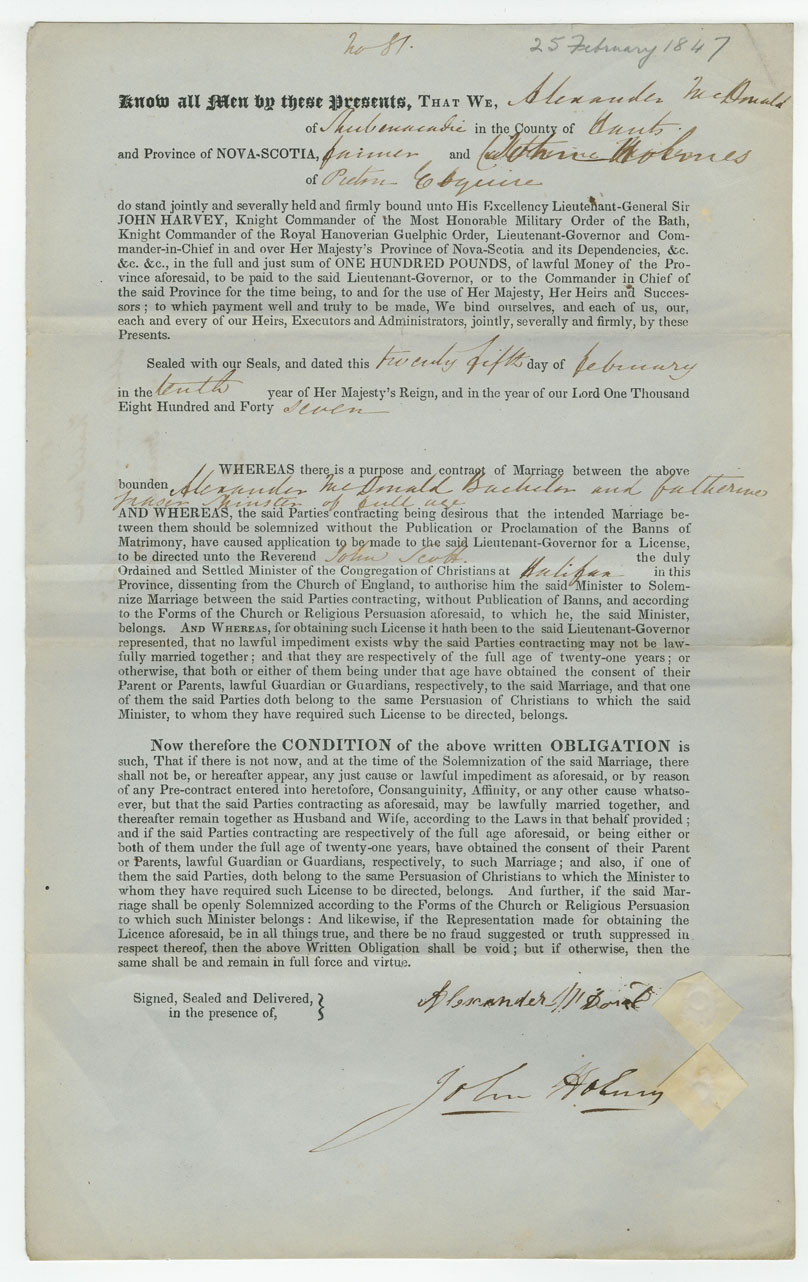 No 81.
25 February 1847
Know all Men by these Presents, THAT WE, Alexander McDonald
of Shubenacadie in the County of Hants
and Province of NOVA-SCOTIA, farmer and John Holmes
of Pictou Esquire
do stand jointly and severally held and firmly bound unto His Excellency Lieutenant-General Sir
JOHN HARVEY, Knight Commander of the Most Honorable Military Order of the Bath,
Knight Commander of the Royal Hanoverian Guelphic Order, Lieutenant-Governor and Com-
mander-in-Chief in and over Her Majesty's Province of Nova-Scotia and its Dependencies, &c.
&c. &c., in the full and just sum of ONE HUNDRED POUNDS, of lawful Money of the Pro-
vince aforesaid, to be paid to the said Lieutenant-Governor, or to the Commander in Chief of
the said Province for the time being, to and for the use of Her Majesty, Her Heirs and Succes-
sors ; to which payment well and truly to be made, We bind ourselves, and each of us, our,
each and every of our Heirs, Executors and Administrators, jointly, severally and firmly, by these
Presents.
Sealed with our Seals, and dated this twenty fifth day of february
in the tenth year of Her Majesty's Reign, and in the year of our Lord One Thousand
Eight Hundred and Forty seven
WHEREAS there is a purpose and contract of Marriage between the above
bounden Alexander McDonald Bachelor and Catherine
fraser Spinster of full age
AND WHEREAS, the said Parties contracting being desirous that the intended Marriage be-
tween them should be solemnized without the Publication or Proclamation of the Banns of
Matrimony, have caused application to be made to the said Lieutenant-Governor for a License,
to be directed unto the Reverend John Scott the duly
Ordained and Settled Minister of the Congregation of Christians at Halifax in this
Province, dissenting from the Church of England, to authorise him the said Minister to Solem-
nize Marriage between the said Parties contracting, without Publication of Banns, and according
to the Forms of the Church or Religious Persuasion aforesaid, to which he, the said Minister,
belongs. AND WHEREAS, for obtaining such License it hath been to the said Lieutenant-Governor
represented, that no lawful impediment exists why the said Parties contracting may not be law-
fully married together ; and that they are respectively of the full age of twenty-one years ; or
otherwise, that both or either of them being under that age have obtained the consent of their
Parent or Parents, lawful Guardian or Guardians, respectively, to the said Marriage, and that one
of them the said Parties doth belong to the same Persuasion of Christians to which the said
Minister, to whom they have required such License to be directed, belongs.
Now therefore the CONDITION of the above written OBLIGATION is
such, That if there is not now, and at the time of the Solemnization of the said Marriage, there
shall not be, or hereafter appear, any just cause or lawful impediment as aforesaid, or by reason
of any Pre-contract entered into heretofore, Consanguinity, Affinity, or any other cause whatso-
ever, but that the said Parties contracting as aforesaid, may be lawfully married together, and
thereafter remain together as Husband and Wife, according to the Laws in that behalf provided ;
and if the said Parties contracting are respectively of the full age aforesaid, or being either or
both of them under the full age of twenty-one years, have obtained the consent of their Parent
or Parents, lawful Guardian or Guardians, respectively, to such Marriage ; and also, if one of
them the said Parties, doth belong to the same Persuasion of Christians to which the Minister to
whom they have required such License to be directed, belongs. And further, if the said Mar-
riage shall be openly Solemnized according to the Forms of the Church or Religious Persuasion
to which such Minister belongs : And likewise, if the Representation made for obtaining the
Licence aforesaid, be in all things true, and there be no fraud suggested or truth suppressed in
respect thereof, then the above Written Obligation shall be void ; but if otherwise, then the
same shall be and remain in full force and virtue.
Signed, Sealed and Delivered,
in the presence of,
Alexander McDonald
John Holmes